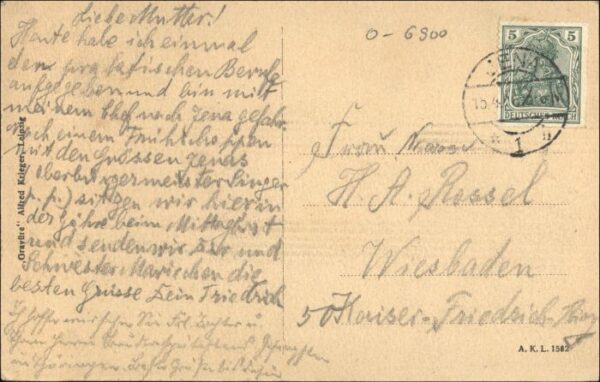 Liebe Mutter!
Heute habe ich einmal
den praktischen Beruf
aufgegeben und bin mit
meinem Chef nach Jena gefahr.
Nach einem Frühschoppen
mit den Grossen Jenas
(Oberbürgermeister Singer
p. p.) sitzen wir hier in
der Göhre beim Mittagbrot
und senden wir Dir und
Schwester Mariechen die
besten Grüsse Dein Friedrich
Ich hoffe
in Thüringen. Beste Grüsse
"Gravüre" Alfred Krieger, Leipzig
0-6900
5 5
DEUTSCHES REICH
JENA
15.4
* 1 h
Frau
H. A. Rossel
Wiesbaden
50 Kaiser-Friedrich-Ring
A. K. L. 1582